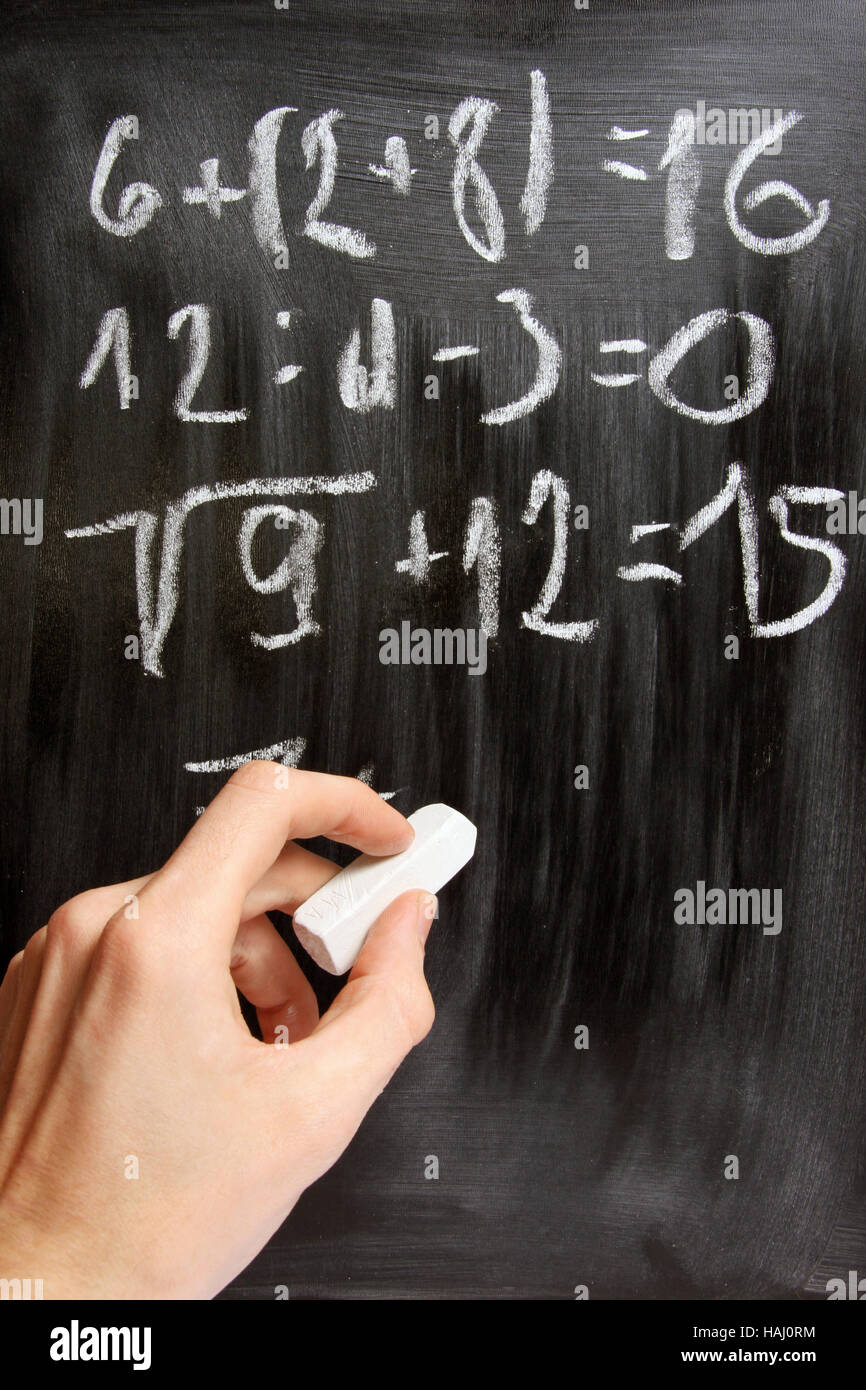 6+(2+8)=16
12:4-3=0
√9+12=15
7
alamy
Image ID: HAJ0RM
www.alamy.com